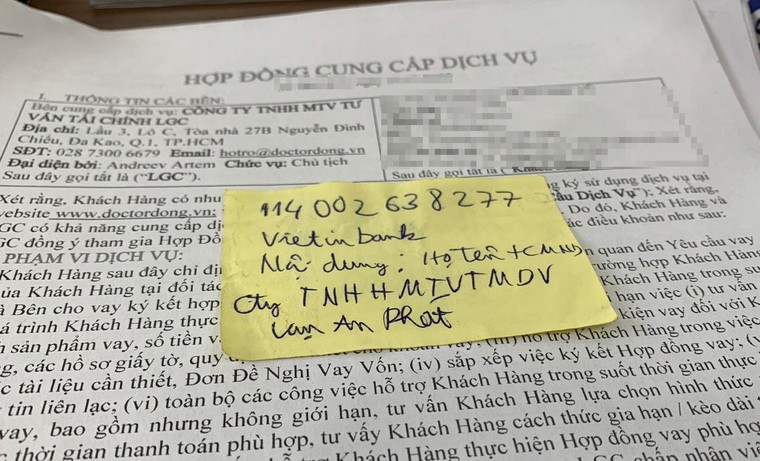 HỢP ĐỒNG CUNG CẤP DỊCH VỤ
I. THÔNG TIN CÁC BÊN:
Bên cung cấp dịch vụ: CÔNG TY TNHH MTV TƯ
VẤN TÀI CHÍNH LGC
Địa chỉ: Lầu 3, Lô C, Tòa nhà 27B Nguyễn Đình
Chiểu, Đa Kao, Q.1, TP.HCM
SĐT: 028 7300 6679 Email: hotro@doctordong.vn
Đại diện bởi: Andreev Artem Chức vụ: Chủ tịch
Sau đây gọi tắt là ("LGC").
Sau đây gọi tắt là
Xét rằng, Khách Hàng có nhu
ký sử dụng dịch vụ tại
website www.doctordong.vn;
Dịch Vụ"); Xét rằng,
GC có khả năng cung cấp
Do đó, Khách Hàng
GC đồng ý tham gia Hợp Đồ
các điều khoản như sau:
PHẠM VI DỊCH VỤ:
Khách Hàng sau đây chỉ đị
quan đến Yêu cầu vay
của Khách Hàng tại đối tác
trường hợp Khách Hàng
à Bên cho vay ký kết hợp
Khách Hàng trong su
á trình Khách Hàng thực
hạn việc (i) tư vấn
n sản phẩm vay, số tiền v
kiện vay đối với K
114002638277
Vietinbank
Nội dung: Họ tên + CMND
Cty TNHH MTV TMDV
Vạn An Phát
g, các hồ sơ giấy tờ, quy
hỗ trợ Khách Hàng trong việc
c tài liệu cần thiết, Đơn Đề Nghị Vay Vốn; (iv) sắp xếp việc ký kết Hợp đồng vay; (v
tin liên lạc; (vi) toàn bộ các công việc hỗ trợ Khách Hàng trong suốt thời gian thực
vay, bao gồm nhưng không giới hạn, tư vấn Khách Hàng lựa chọn hình thức
thời gian thanh toán phù hợp, tư vấy Khách Hàng cách thức gia hạn / kéo dài
Khách Hàng thực hiện Hợp đồng vay phù hợ
LGC chấp nhận